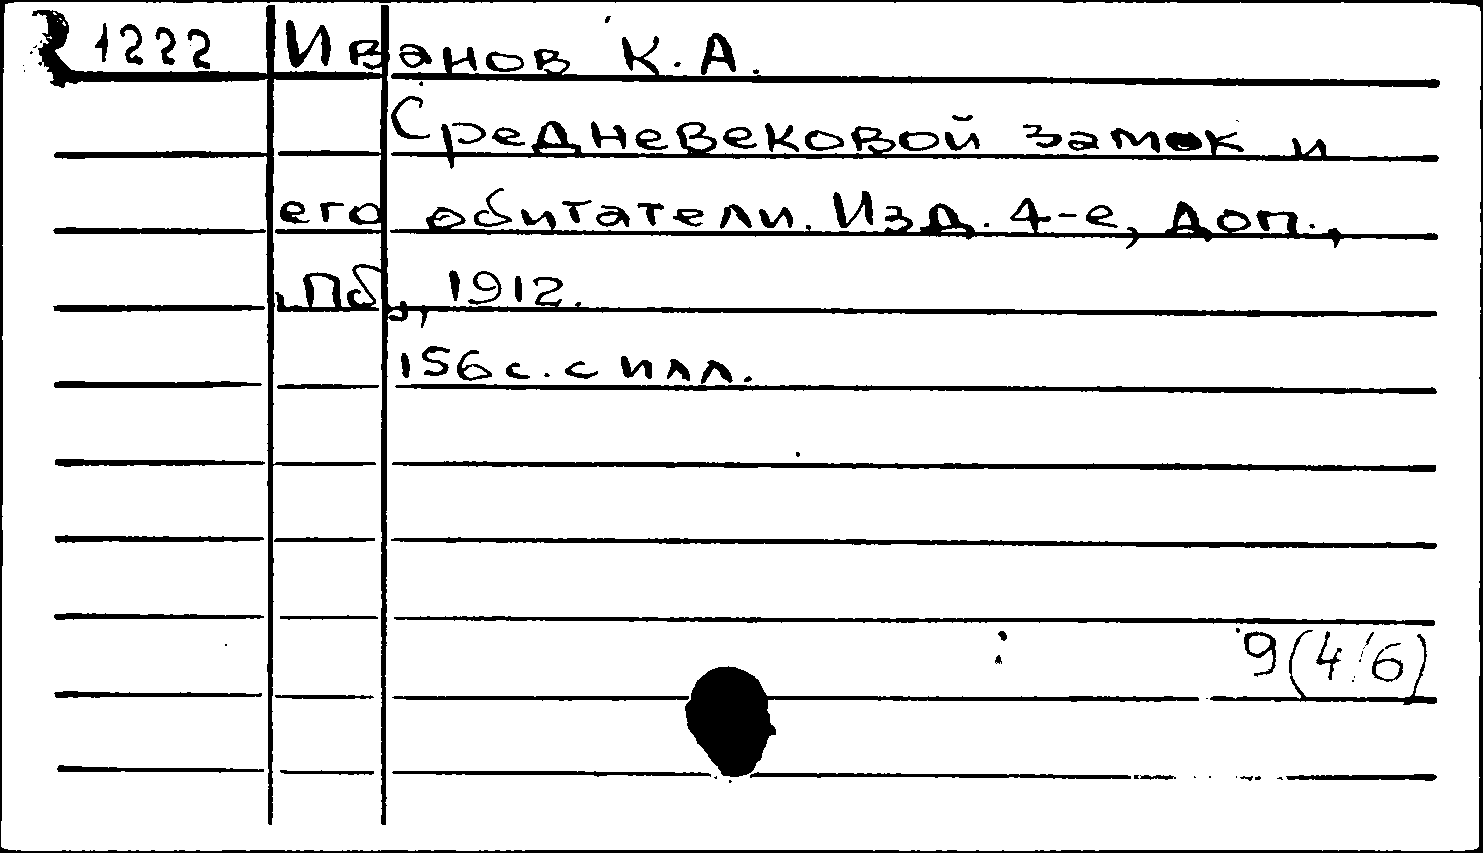 1222 Иванов К.А.
Средневековой замок и
его обитатели. Изд. 4-е, доп.,
Пб., 1912.
156 с. с илл.
9(4/6)